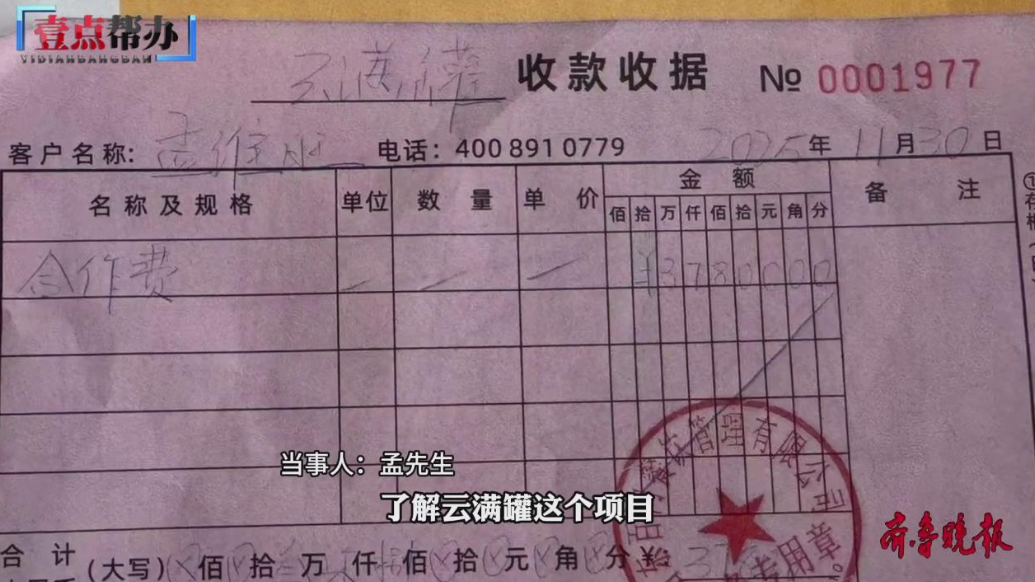 壹点帮办
YIDIANBANGBAN
云满罐 收款收据 № 0001977
客户名称: 孟维 电话: 400 891 0779 2025年11月30日
名称及规格 单位 数量 单价 金额 备注
佰 拾 万 仟 佰 拾 元 角 分
合作费 — — — ¥3780000
当事人：孟先生
了解云满罐这个项目
管理有限公司
专用章
合计 (大写) 佰 拾 万 仟 佰 拾 元 角 分 ¥ 37
齐鲁晚报